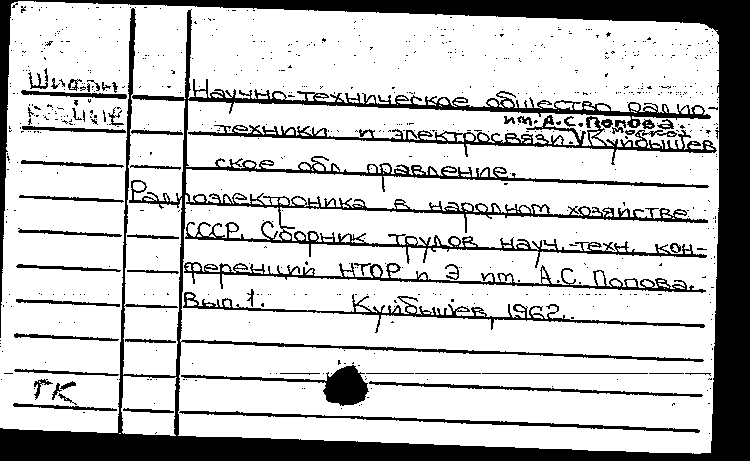 Шифры
разные
Научно-техническое общество радио-
им. А.С.Попова.
техники и электросвязи. Куйбышев
ское обл. правление.
Радиоэлектроника в народном хозяйстве
СССР. Сборник трудов науч.-техн. кон-
ференции НТОР и Э им. А.С. Попова.
Вып. 1. Куйбышев, 1962.
ГК